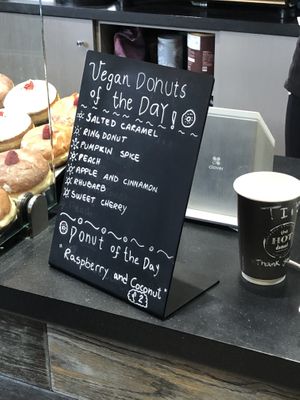 Vegan Donuts
of the Day!
SALTED CARAMEL
RING DONUT
PUMPKIN SPICE
PEACH
APPLE AND CINNAMON
RHUBARB
SWEET CHERRY
Donut of the Day
"Raspberry and Coconut"
£2
clover
TI
the
HO
Thank